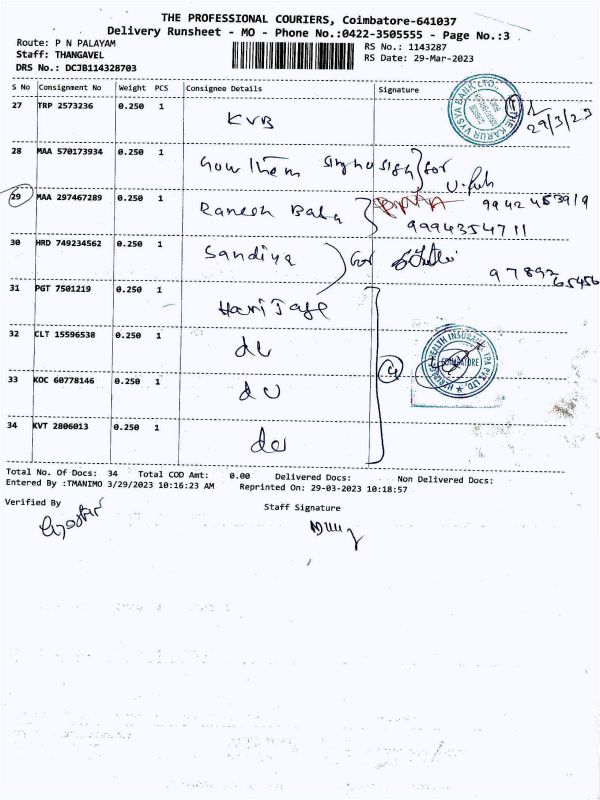 THE PROFESSIONAL COURIERS, Coimbatore-641037
Delivery Runsheet - MO - Phone No.:0422-3505555 - Page No.:3
Route: P N PALAYAM
RS No.: 1143287
Staff: THANGAVEL
RS Date: 29-Mar-2023
DRS No.: DCJB114328703
S No Consignment No Weight PCS Consignee Details Signature
27 TRP 2573236 0.250 1 KVB
THE KARUR VYSYA BANK LTD.
29/3/23
28 MAA 570173934 0.250 1 for
29 MAA 297467289 0.250 1 Ranesh Babu
9994354711
30 HRD 749234562 0.250 1 Sandiya for
97892 65456
31 PGT 7501219 0.250 1
32 CLT 15596538 0.250 1 do
33 KOC 60778146 0.250 1 do
34 KVT 2806013 0.250 1 do
4
HEALTH INSURANCE TPA PVT LTD
COIMBATORE
Total No. Of Docs: 34 Total COD Amt: 0.00 Delivered Docs: Non Delivered Docs:
Entered By :TMANIMO 3/29/2023 10:16:23 AM Reprinted On: 29-03-2023 10:18:57
Verified By
Staff Signature